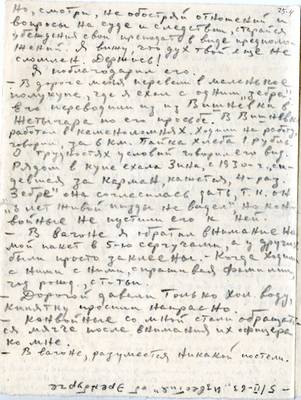 75-4
Но, смотри, не обостряй отношений и
вопросы на суде и следствии старайся
убеждения свои преподать в виде предположений
жений. Я вижу, что дух твой еще не
сломлен. Держись!
Я поблагодарил его.
– В дороге меня перевели в маленькое
полукупе, где я ехал с одним "зебре"
Его переводили из из Вишневки в
Жетыгара по его просьбе. В Вишневке
работал в каменоломнях. Ходили на работу
говорил, за 6 км. Пайка хлеба грубая.
О трудностях условий говорил его вид.
Рядом в купе ехала Зина с 1930 г.,
за карман, кажется, 4 раз.
"Зебре" она согласилась дать, т.к. он
"3 лет живой не видел" Но кон-
войные не пустили его к ней.
– В вагоне я обратил внимание на
мой пакет в 5-ю сургучами, а у других
были просто заклеены. – Когда ходил
с ними с ними, спрашивая фамилии,
год рожд., статьи.
– Дорогой давали только хол. воду,
кипятку просили напрасно.
– Конвойные со мной стали обращаться
мягче после внимания их офицера
ко мне.
– В вагоне, разумеется никакой постели.
– 5/II-63 "Известия" об Эренбурге